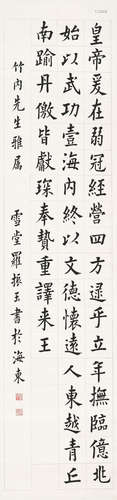 皇帝爰在弱冠經營四方逮乎立年撫臨億兆
始以武功壹海内終以文德懷遠人東越青丘
南踰丹儌皆獻琛奉贄重譯来王
竹内先生雅属
雪堂羅振玉書於海東